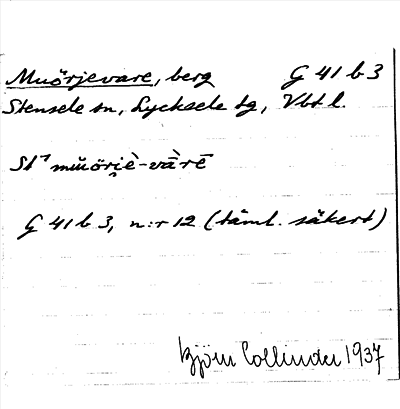 Muörjevare, berg G 41 b 3
Stensele sn, Lycksele tg, Vbt l.
St⁷ mŭöri̯è-vàrē
G 41 b 3, n:r 12 (täml. säkert)
Björn Collinder 1937